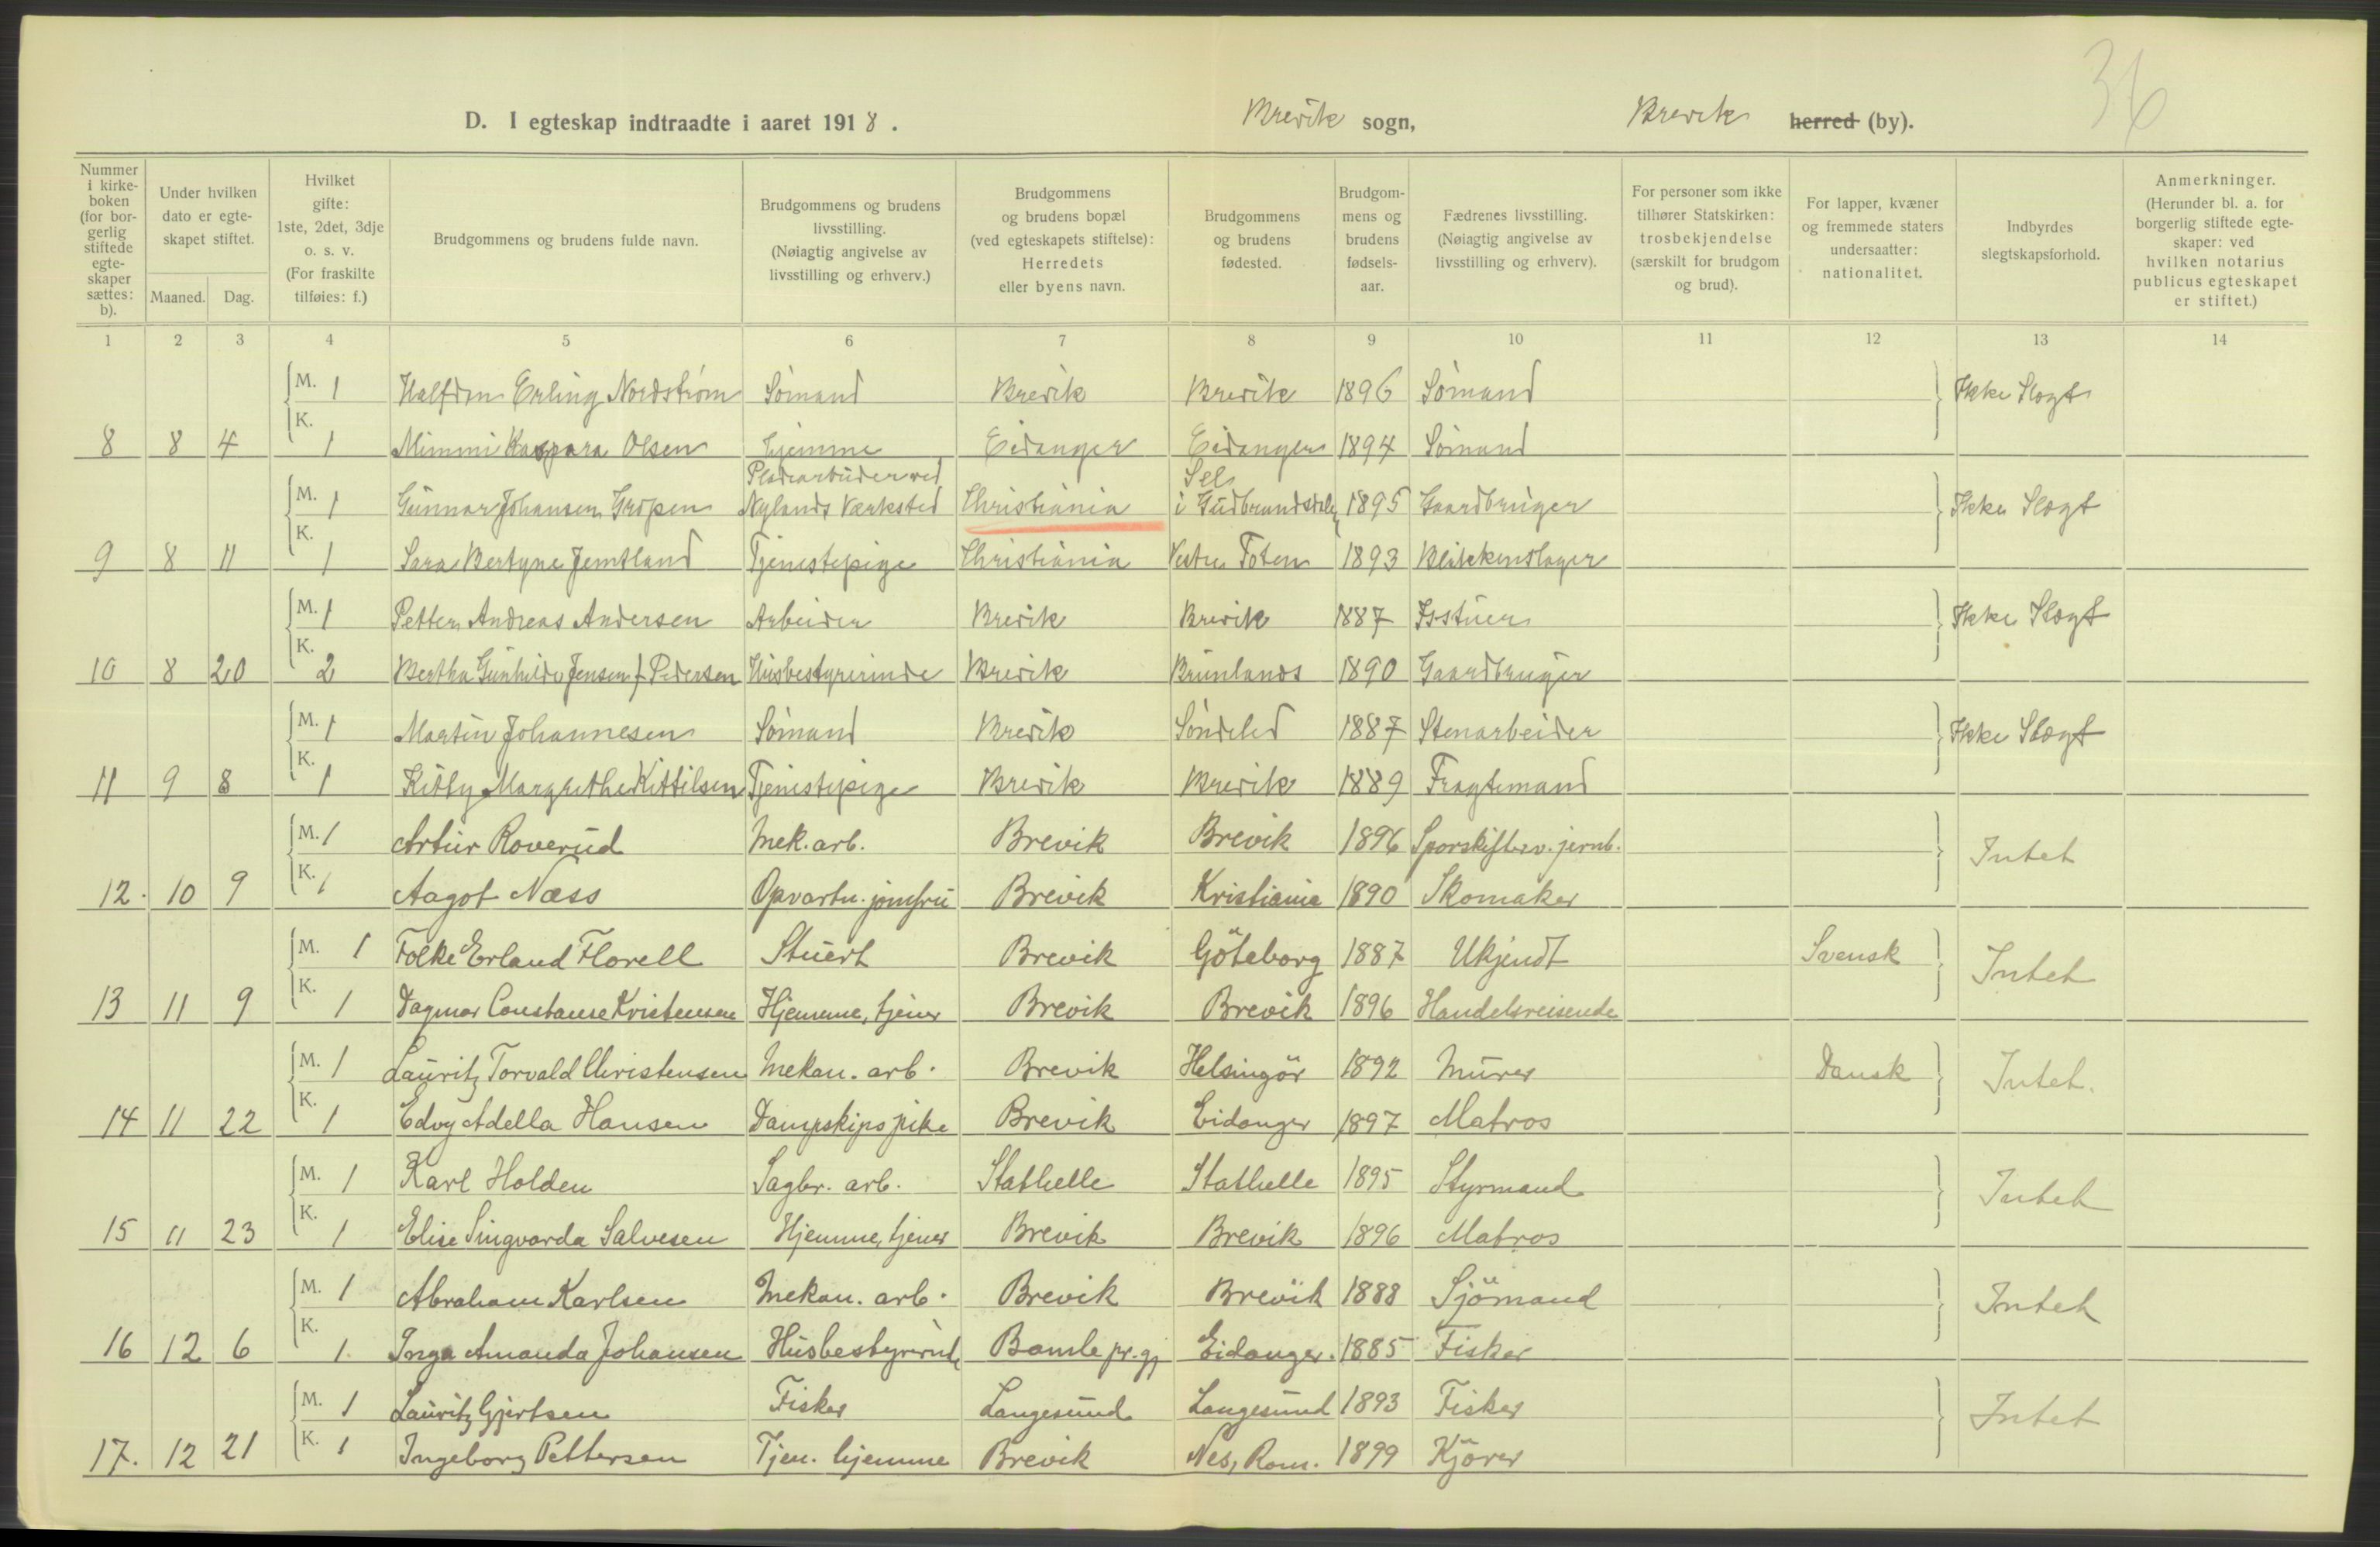 36
D. I egteskap indtraadte i aaret 1918. Brevik sogn, Brevik herred (by).
Nummer i kirkeboken (for borgerlig stiftede egteskaper sættes: b).
Under hvilken dato er egteskapet stiftet.
Maaned. Dag.
Hvilket gifte: 1ste, 2det, 3dje o. s. v. (For fraskilte tilføies: f.)
Brudgommens og brudens fulde navn.
Brudgommens og brudens livsstilling. (Nøiagtig angivelse av livsstilling og erhverv.)
Brudgommens og brudens bopæl (ved egteskapets stiftelse): Herredets eller byens navn.
Brudgommens og brudens fødested.
Brudgommens og brudens fødselsaar.
Fædrenes livsstilling. (Nøiagtig angivelse av livsstilling og erhverv).
For personer som ikke tilhører Statskirken: trosbekjendelse (særskilt for brudgom og brud).
For lapper, kvæner og fremmede staters undersaatter: nationalitet.
Indbyrdes slegtskapsforhold.
Anmerkninger. (Herunder bl. a. for borgerlig stiftede egteskaper: ved hvilken notarius publicus egteskapet er stiftet.)
1 2 3 4 5 6 7 8 9 10 11 12 13 14
M. 1 Halfdan Erling Nordstrøm Sømand Brevik Brevik 1896 Sømand Ikke Slegt
8 8 4 K. 1 Mimmi Kaspara Olsen hjemme Eidanger Eidanger 1894 Sømand
M. 1 Gunnar Johansen Gropen Pladearbeider ved Nylands Værksted Christiania Sel i Gudbrandsdalen 1895 Gaardbruger Ikke Slegt
9 8 11 K. 1 Sara Bertyne Jemtland Tjenestepige Christiania Vestre Toten 1893 Blikkenslager
M. 1 Petter Andreas Andersen Arbeider Brevik Brevik 1887 Isstuer Ikke Slegt
10 8 20 K. 2 Bertha Gunhilde Jensen f. Pedersen Husbestyrerinde Brevik Brunlanes 1890 Gaardbruger
M. 1 Martin Johannesen Sømand Brevik Søndeled 1887 Stenarbeider Ikke Slegt
11 9 8 K. 1 Kitty Margrethe Kittilsen Tjenestepige Brevik Brevik 1889 Fragtemand
M. 1 Artur Roverud Mek. arb. Brevik Brevik 1896 Sporskifter v. jernb. Intet
12. 10 9 K. 1 Aagot Næss Opvartn. jomfru Brevik Kristiania 1890 Skomaker
M. 1 Folke Erland Florell Stuert Brevik Göteborg 1887 Ukjendt Svensk Intet
13 11 9 K. 1 Dagmar Constanse Kristensen Hjemme, tjener Brevik Brevik 1896 Handelsreisende
M. 1 Lauritz Torvald Christensen Mekan. arb. Brevik Helsingör 1892 Murer Dansk Intet.
14 11 22 K. 1 Edvy Adella Hansen Dampskips pike Brevik Eidanger 1897 Matros
M. 1 Karl Holden Sagbr. arb. Stathelle Stathelle 1895 Styrmand Intet
15 11 23 K. 1 Elise Singvarda Salvesen Hjemme, tjener Brevik Brevik 1896 Matros
M. 1 Abraham Karlsen Mekan. arb. Brevik Brevik 1888 Sjömand Intet
16 12 6 K. 1. Inga Amanda Johansen Husbestyrerinde Bamle pr.gj Eidanger. 1885 Fisker
M. 1 Lauritz Gjertsen Fisker Langesund Langesund 1893 Fisker Intet
17. 12 21 K. 1 Ingeborg Pettersen Tjen. hjemme Brevik Nes, Rom. 1899 Kjörer